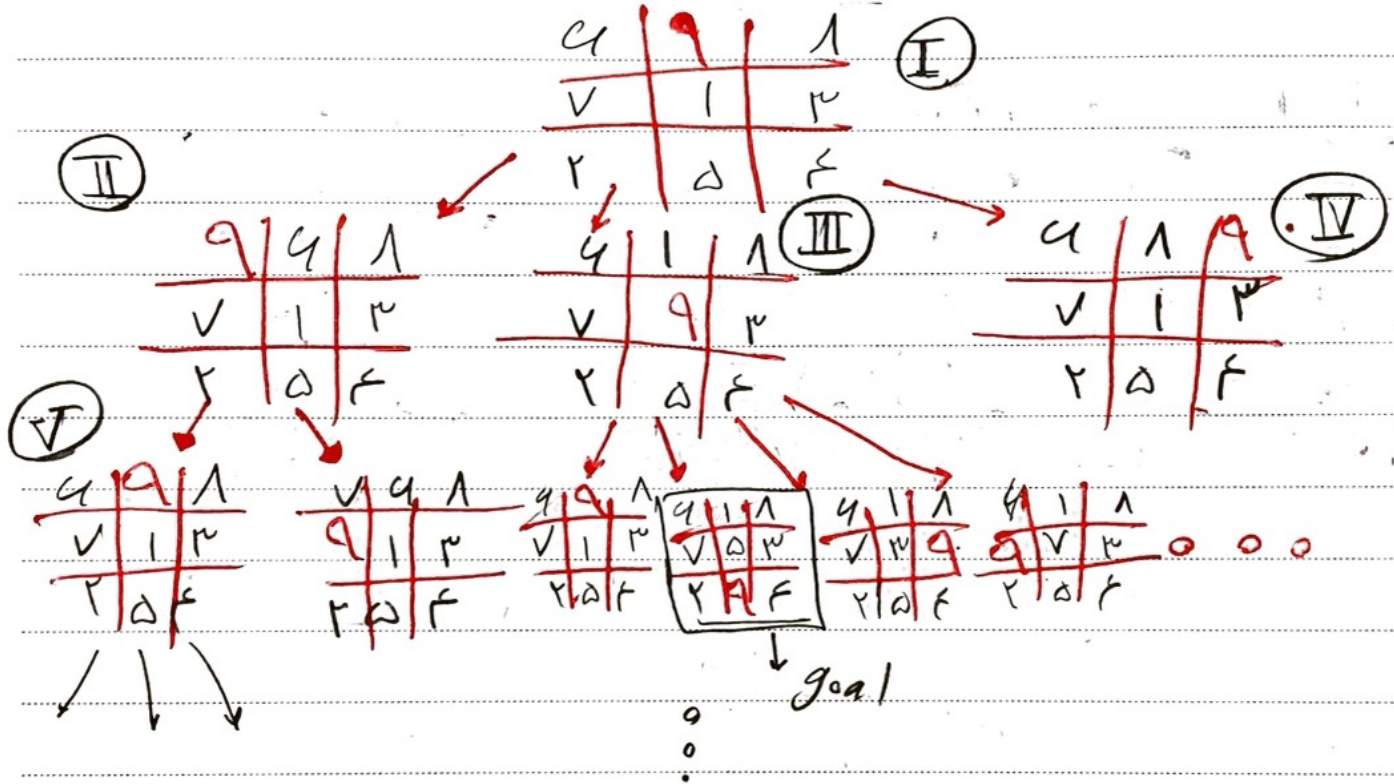 I
۶ ۹ ۸
۷ ۱ ۳
۲ ۵ ۴
II
۹ ۶ ۸
۷ ۱ ۳
۲ ۵ ۴
III
۶ ۱ ۸
۷ ۹ ۳
۲ ۵ ۴
IV
۶ ۸ ۹
۷ ۱ ۳
۲ ۵ ۴
V
۶ ۹ ۸
۷ ۱ ۳
۲ ۵ ۴
۷ ۶ ۸
۹ ۱ ۳
۲ ۵ ۴
۶ ۹ ۸
۷ ۱ ۳
۲ ۵ ۴
۶ ۱ ۸
۷ ۵ ۳
۲ ۹ ۴
۶ ۱ ۸
۷ ۳ ۹
۲ ۵ ۴
۶ ۱ ۸
۹ ۷ ۳
۲ ۵ ۴
goal